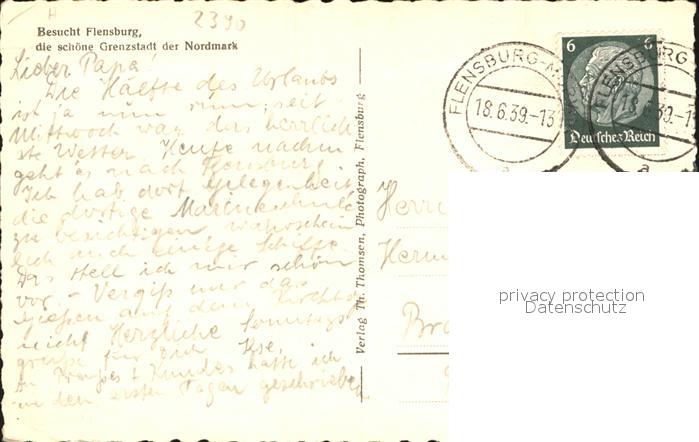 2390
Besucht Flensburg,
die schöne Grenzstadt der Nordmark
Lieber Papa!
Die Hälfte des Urlaubs
ist ja nun rum, seit
Mittwoch war das herrlich
ste Wetter. Heute nachm
geht es nach Flensburg
Ich hab dort Gelegenheit
die dortige Marineschule
zu besichtigen wahrschein
lich auch einige Schiffe.
Das stell ich mir schön
vor. - Vergiß nur das
Gießen auf dem
nicht! Herzliche Sonntags
grüße für Dich
hatte ich
in den ersten Tagen geschrieben
Verlag Th. Thomsen, Photograph, Flensburg
FLENSBURG-M
18.6.39.-13
6 6
Deutsches Reich
FLENSBURG
Herrn
privacy protection
Datenschutz